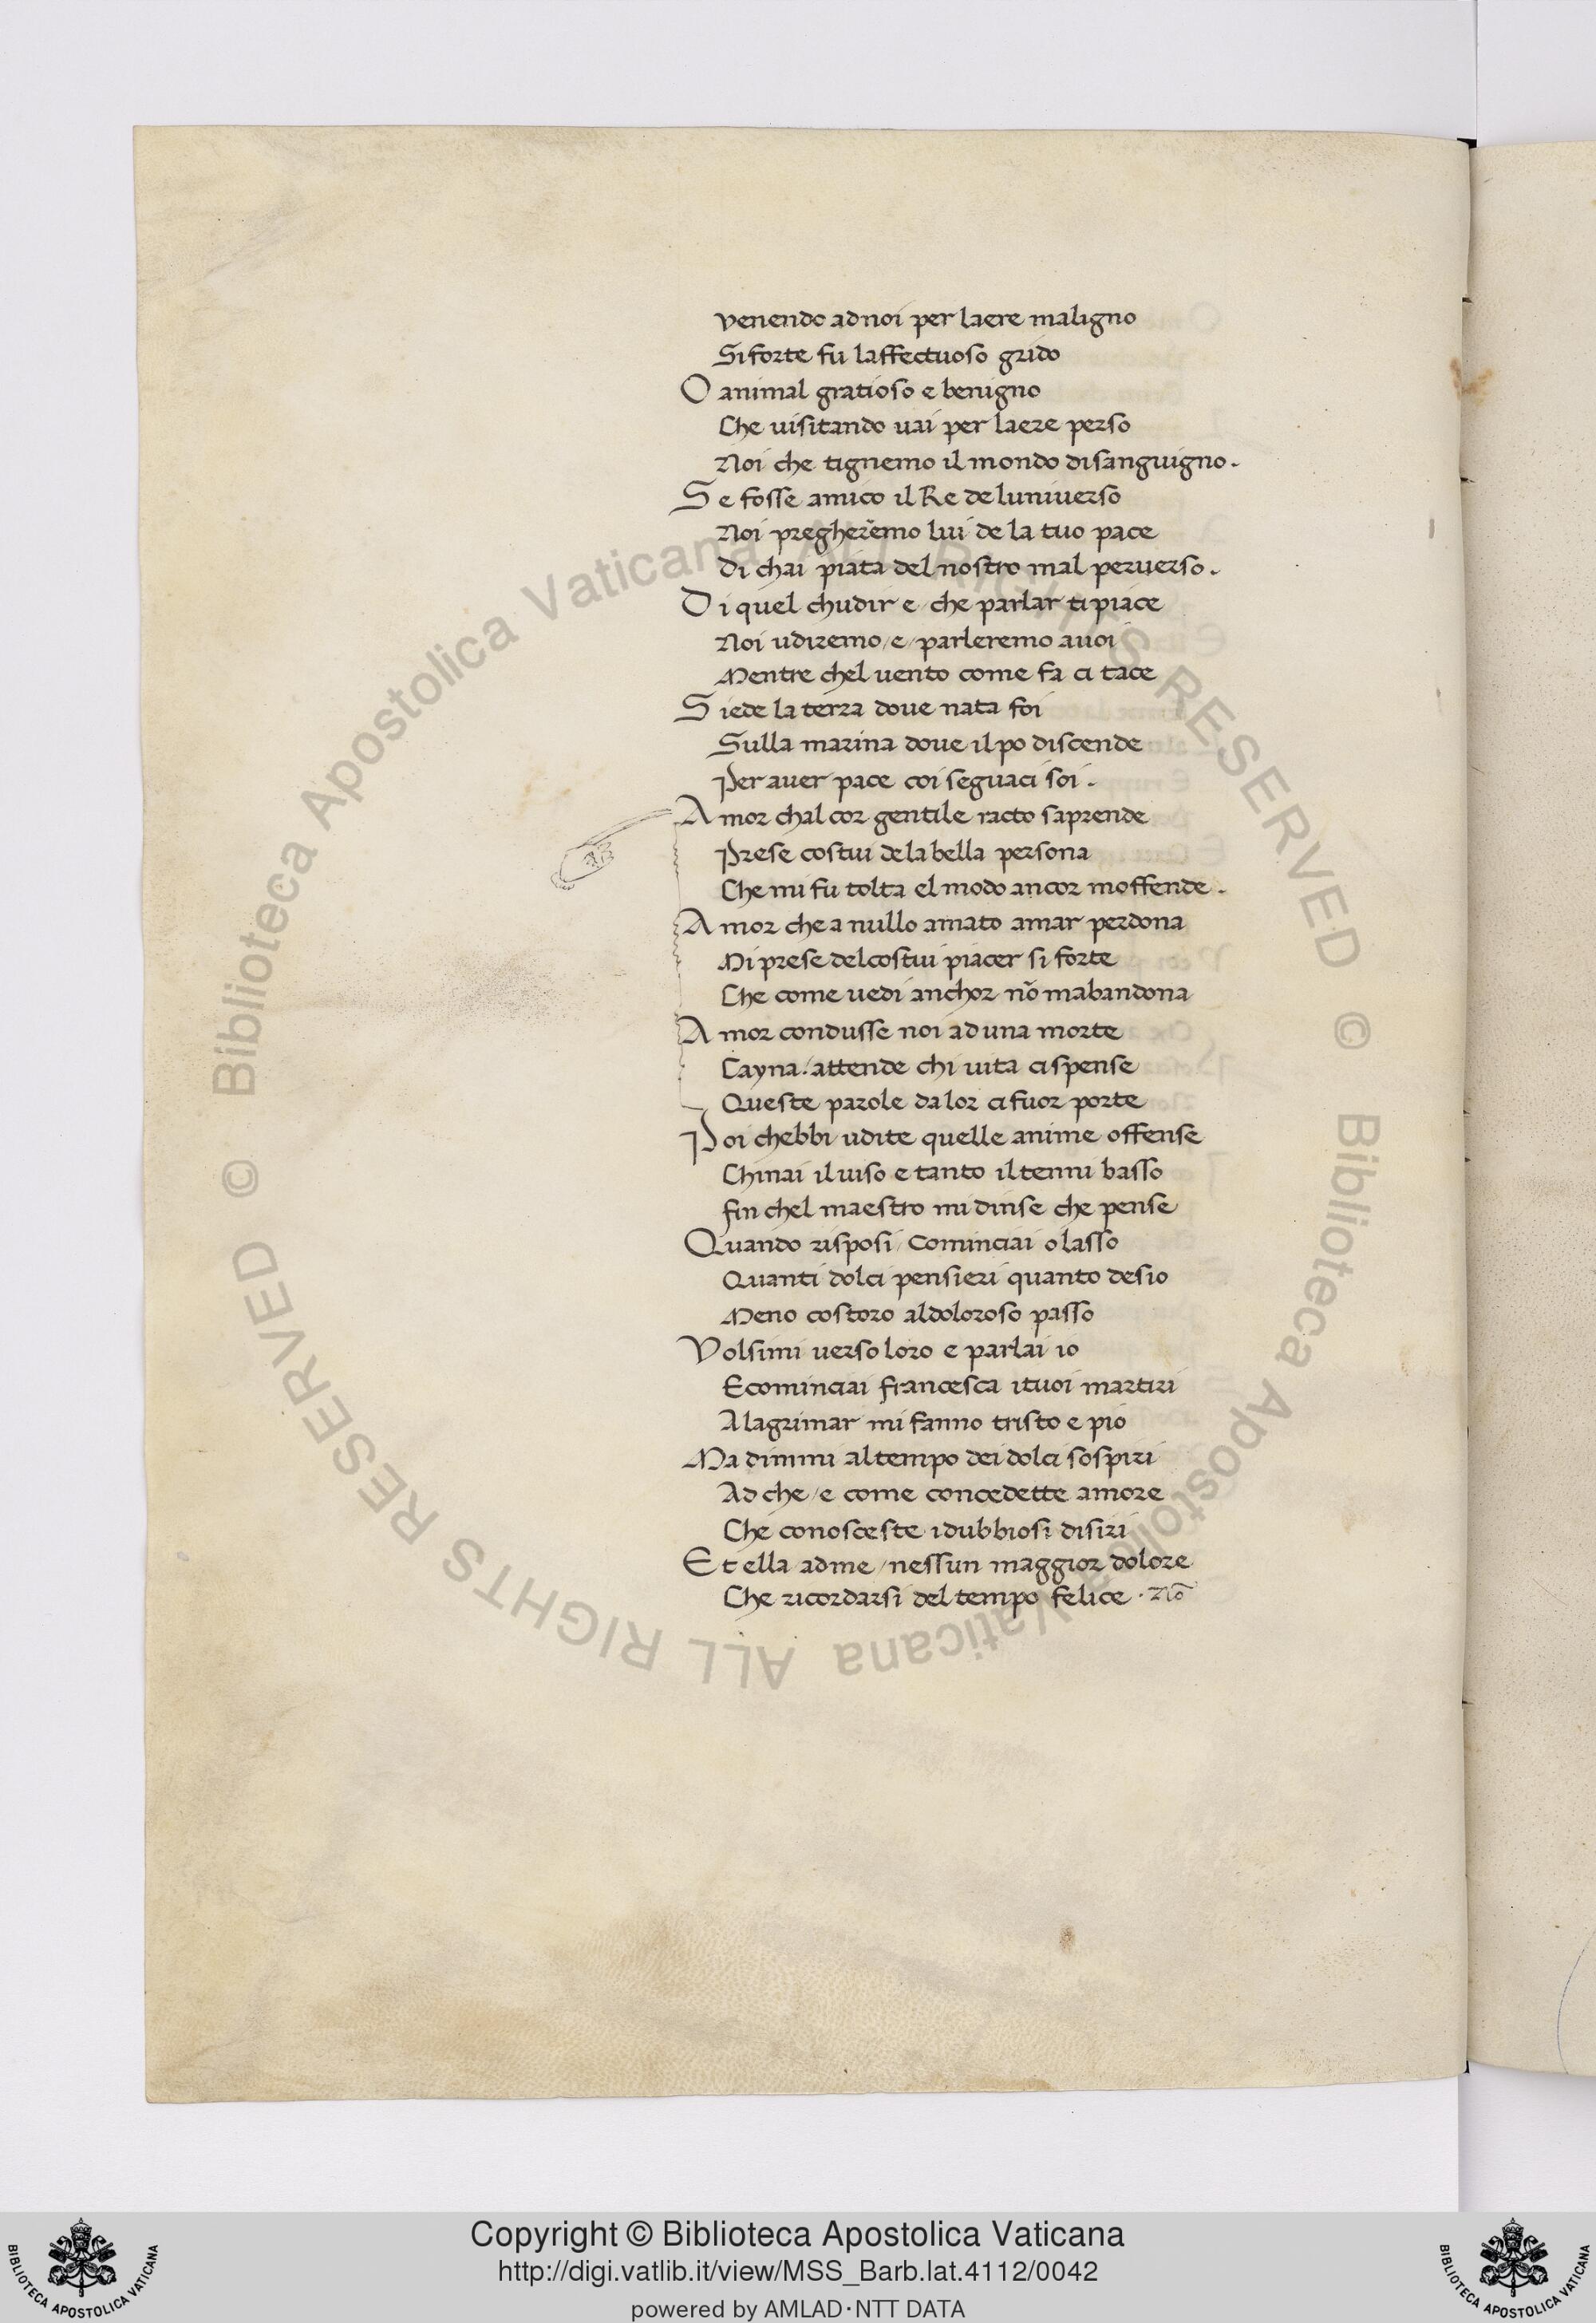 venendo ad noi per laere maligno
Si forte fu laffectuoso grido
O animal gratioso e benigno
Che uisitando uai per laere perso
Noi che tignemo il mondo di sanguigno.
Se fosse amico il Re de luniuerso
Noi pregherẽmo lui de la tuo pace
Di chai piata del nostro mal peruerso.
Di quel chudir e / che parlar ti piace
Noi udiremo / e / parleremo a uoi
Mentre chel uento come fa ci tace
Siede la terra doue nata foi
Sulla marina doue il po discende
Per auer pace coi seguaci soi.
Amor chal cor gentile racto saprende
Prese costui de la bella persona
Che mi fu tolta el modo ancor moffende.
Amor che a nullo amato amar perdona
Mi prese del costui piacer si forte
Che come uedi anchor nõ mabandona
Amor condusse noi ad una morte
Cayna / attende chi uita ci spense
Queste parole da lor ci fuor porte
Poi chebbi udite quelle anime offense
Chinai il uiso e tanto il tenni basso
fin chel maestro mi dinse che pense
Quando risposi / cominciai o lasso
Quanti dolci pensieri quanto desio
Meno costoro al doloroso passo
Volsimi uerso loro e parlai io
E cominciai francesca i tuoi martiri
A lagrimar mi fanno tristo e pio
Ma dimmi al tempo dei dolci sospiri
Ad che / e come concedette amore
Che conosceste i dubbiosi disiri
Et ella ad me / nessun maggior dolore
Che ricordarsi del tempo felice . Nõ
© Biblioteca Apostolica Vaticana ALL RIGHTS RESERVED © Biblioteca Apostolica Vaticana ALL RIGHTS RESERVED
BIBLIOTECA APOSTOLICA VATICANA
Copyright © Biblioteca Apostolica Vaticana
http://digi.vatlib.it/view/MSS_Barb.lat.4112/0042
powered by AMLAD・NTT DATA
BIBLIOTECA APOSTOLICA VATICANA